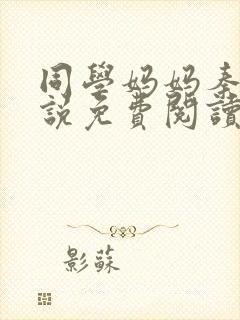 同學妈妈秦
說免費閱讀
影蘇